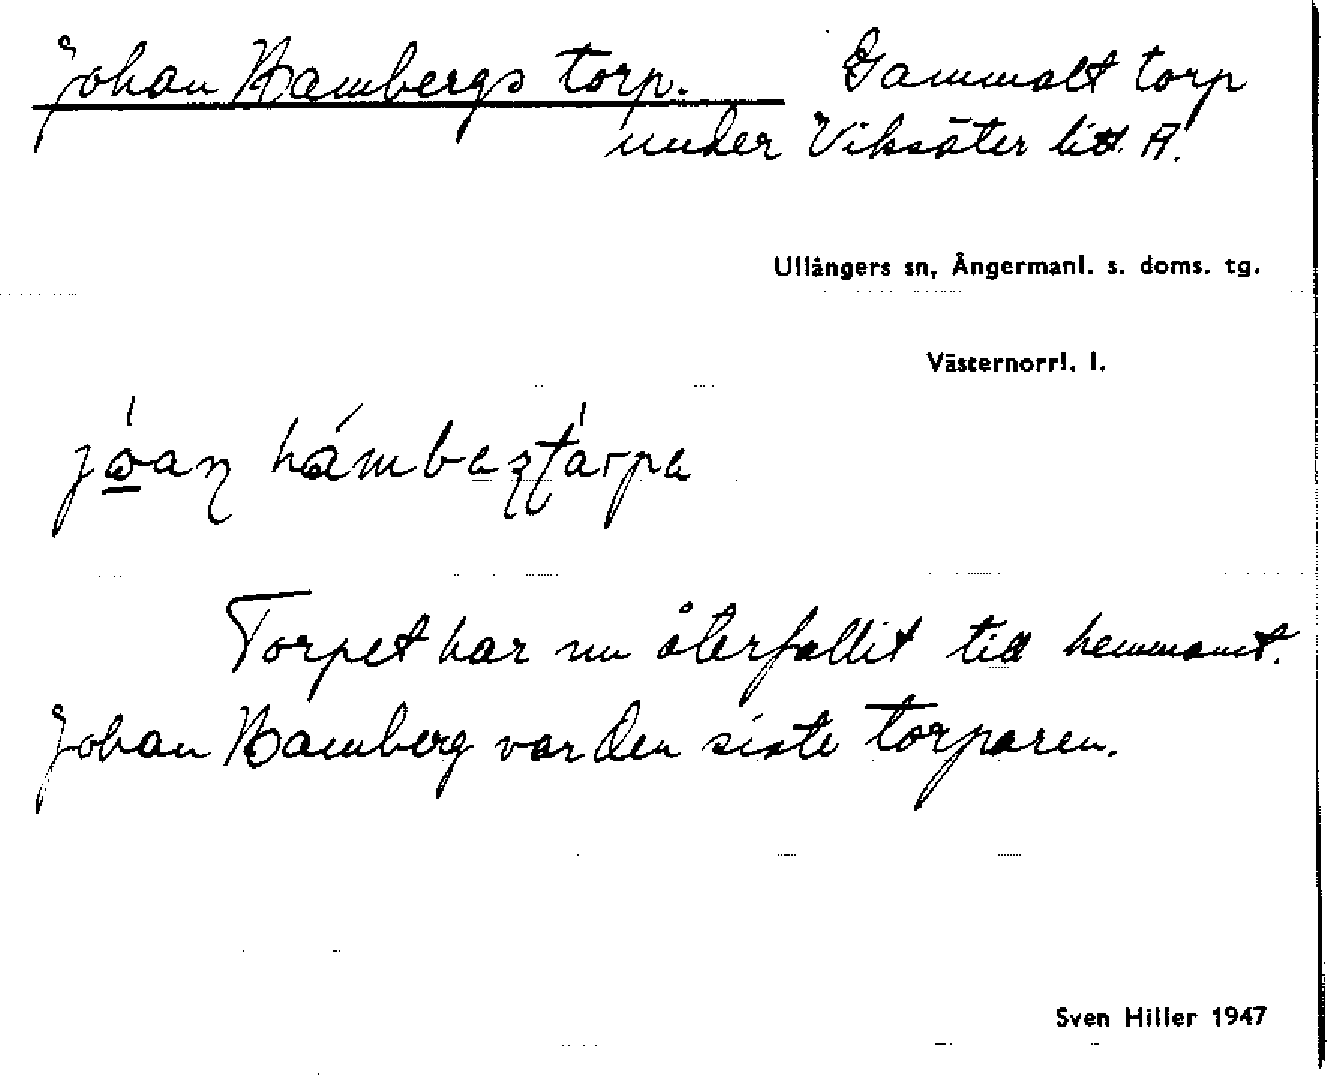 Johan Hambergs torp. Gammalt torp
under Viksäter litt. A.
Ullångers sn, Ångermanl. s. doms. tg.
Västernorrl. l.
Torpet har nu återfallit till hemmanet.
Johan Hamberg var den siste torparen.
Sven Hiller 1947